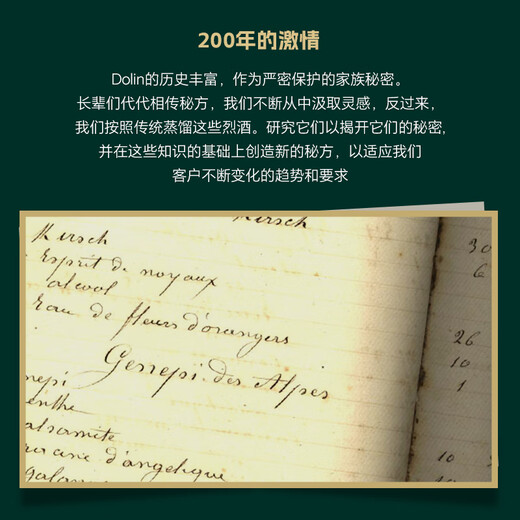 200年的激情
Dolin的历史丰富，作为严密保护的家族秘密。
长辈们代代相传秘方，我们不断从中汲取灵感，反过来，
我们按照传统蒸馏这些烈酒。研究它们以揭开它们的秘密，
并在这些知识的基础上创造新的秘方，以适应我们
客户不断变化的趋势和要求
Kirsch
Kirsch 30
Esprit de noyaux 6
alcool
Eau de fleurs d'orangers 26
Genepi des Alpes 10
1
nepi
enthe
alsamite
d'angelique 10
galan